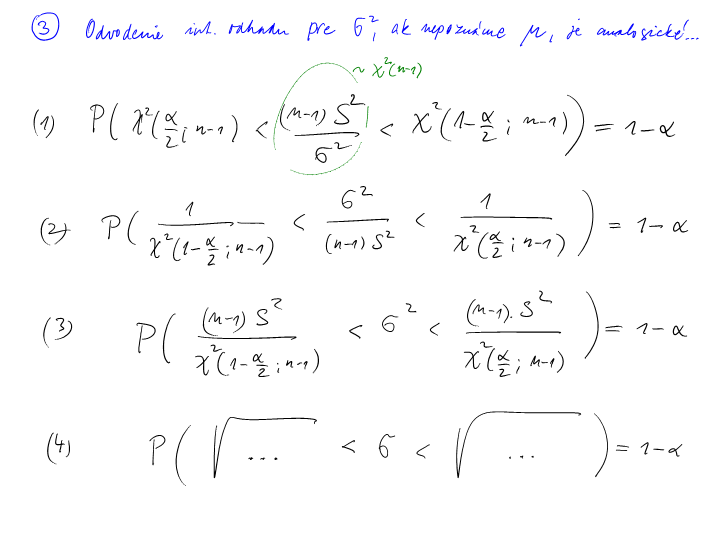 ③ Odvodenie int. odhadu pre σ², ak nepoznáme μ, je analogické...
~ χ²(n-1)
(1) P( χ²(α/2; n-1) < (n-1) S² / σ² < χ²(1-α/2; n-1) ) = 1-α
(2) P( 1 / χ²(1-α/2; n-1) < σ² / (n-1) S² < 1 / χ²(α/2; n-1) ) = 1-α
(3) P( (n-1) S² / χ²(1-α/2; n-1) < σ² < (n-1). S² / χ²(α/2; n-1) ) = 1-α
(4) P( √... < σ < √... ) = 1-α